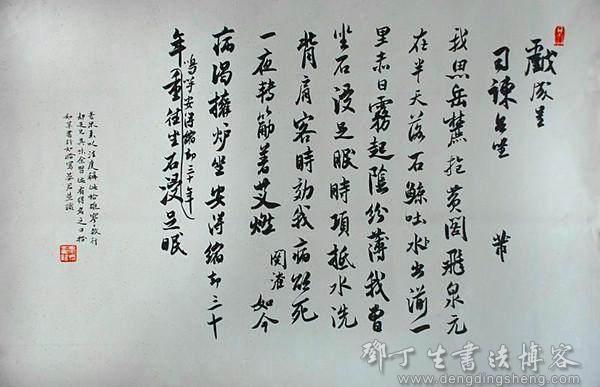 戲成呈
司諫台坐 芾
我思岳麓抱黄閣飛泉元
在半天落石鯨吐水出湔一
里赤日霧起陰紛薄我曾
坐石浸足眠時項抵水洗
背肩客時効我病欲死
一夜轉筋著艾燃 如今
病渴擁炉坐安得縮却三十
年嗚呼安得縮却三十年重往坐石浸足眠
鄧丁生書法博客
www.dengdingsheng.com